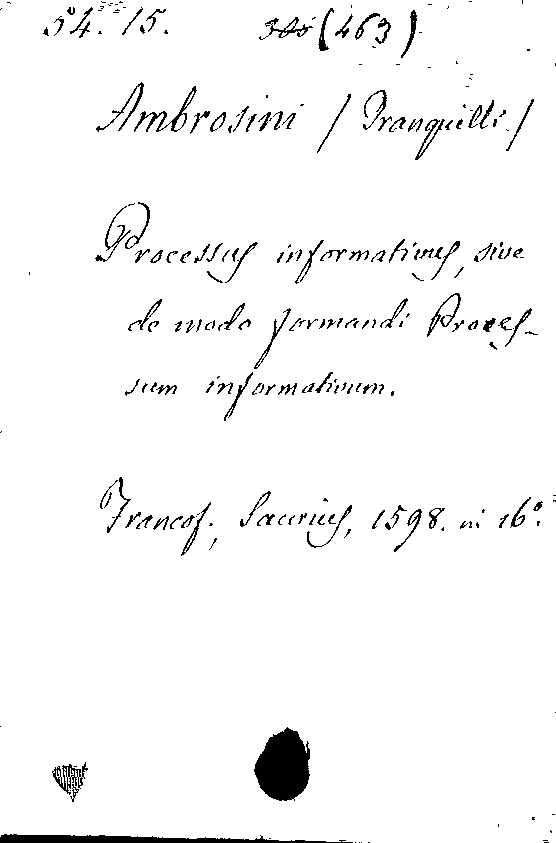 54. 15. 305 (463)
Ambrosini / Tranquilli /
Processus informativus, sive
de modo formandi Proces-
sum informativum.
Francof., Saurius, 1598. in 16°.